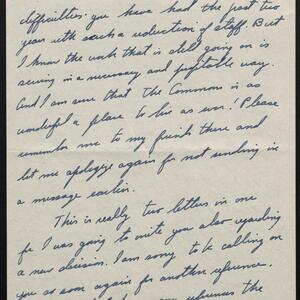 difficulties you have had the past two
years with such a reduction of staff. But
I know the work that is still going on is
serving in a necessary and profitable way.
And I am sure that The Commons is as
wonderful a place to live as ever! Please
remember me to my friends there and
let me apologize again for not sending in
a message earlier.
This is really two letters in one
for I was going to write you also regarding
a new decision. I am sorry to be calling on
you so soon again for another reference.
the